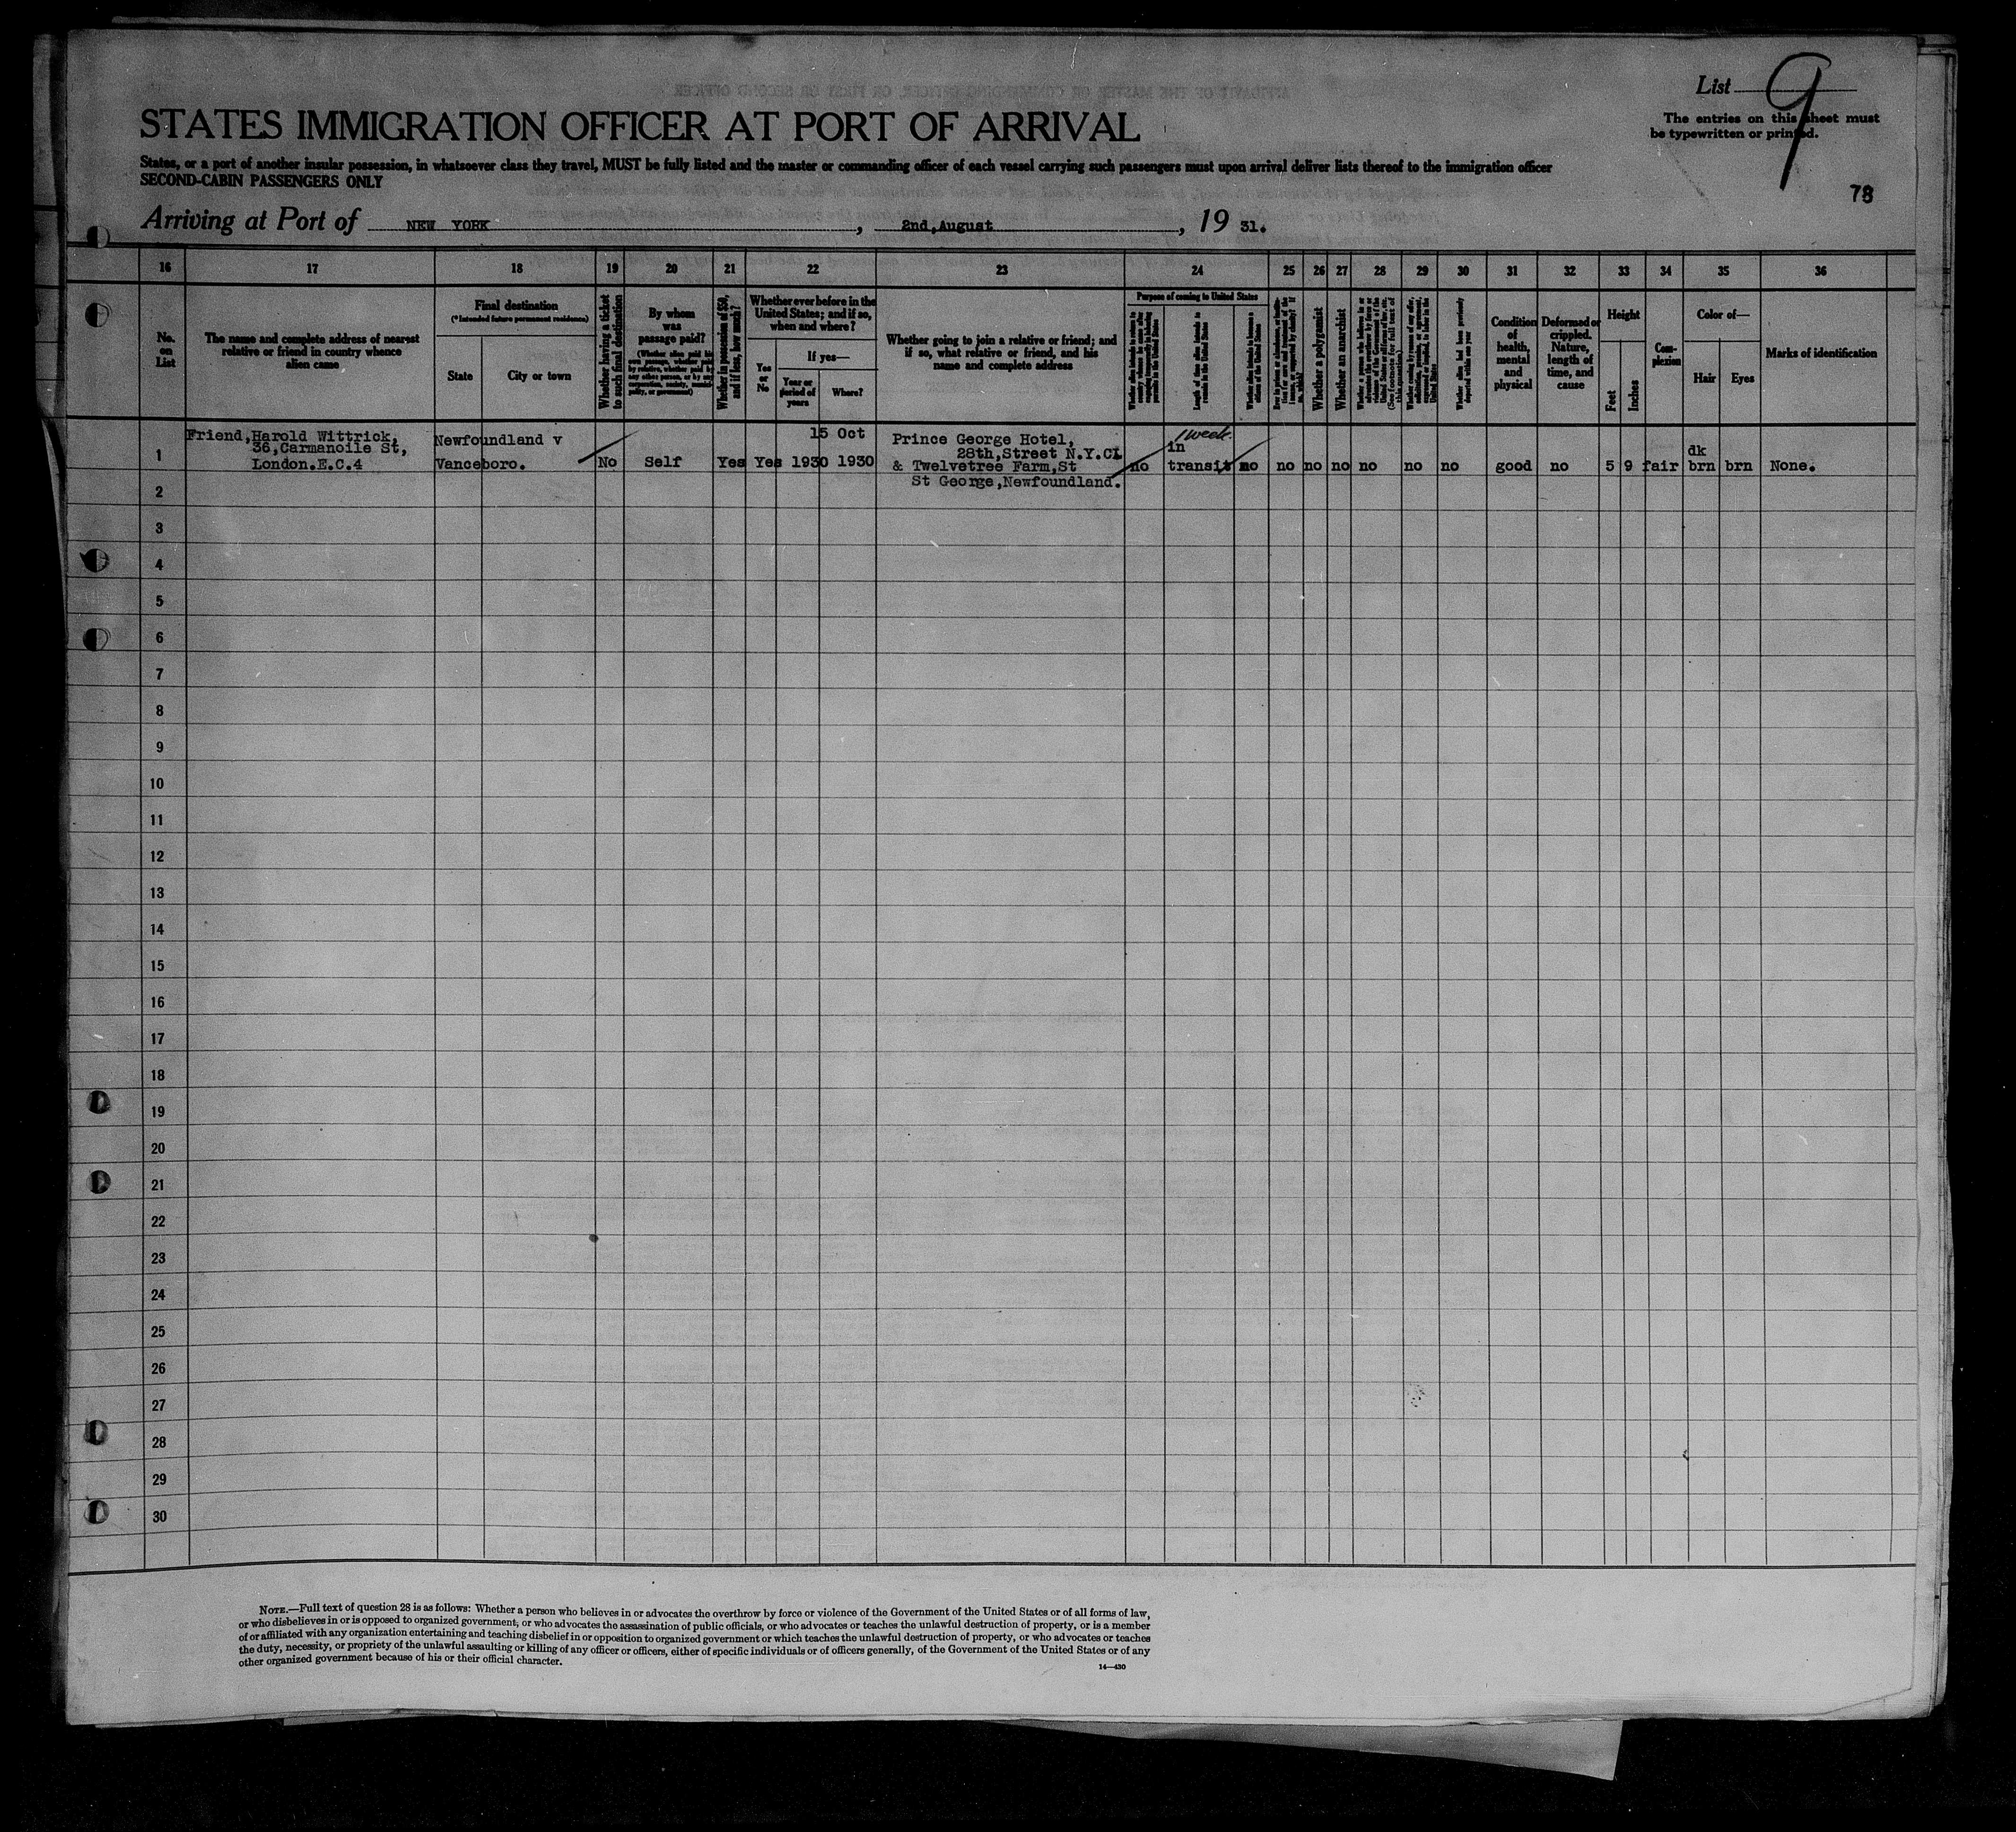 List 9
The entries on this sheet must
be typewritten or printed.
STATES IMMIGRATION OFFICER AT PORT OF ARRIVAL
States, or a port of another insular possession, in whatsoever class they travel, MUST be fully listed and the master or commanding officer of each vessel carrying such passengers must upon arrival deliver lists thereof to the immigration officer
SECOND-CABIN PASSENGERS ONLY
78
Arriving at Port of NEW YORK, 2nd,August, 19 31.
16 17 18 19 20 21 22 23 24 25 26 27 28 29 30 31 32 33 34 35 36
No.
on
List
The name and complete address of nearest
relative or friend in country whence
alien came
Final destination
(*Intended future permanent residence)
State
City or town
Whether having a ticket
to such final destination
By whom
was
passage paid?
Whether in possession of $50,
and if less, how much?
Whether ever before in the
United States; and if so,
when and where?
Yes
or
No
If yes—
Year or
period of
years
Where?
Whether going to join a relative or friend; and
if so, what relative or friend, and his
name and complete address
Purpose of coming to United States
Length of time alien intends to
remain in the United States
Whether alien intends to become a
citizen of the United States
Whether a polygamist
Whether an anarchist
Whether alien had been previously
deported within one year
Condition
of
health,
mental
and
physical
Deformed or
crippled.
Nature,
length of
time, and
cause
Height
Feet
Inches
Com-
plexion
Color of—
Hair
Eyes
Marks of identification
1
Friend,Harold Wittrick,
36,Carmanoile St,
London.E.C.4
Newfoundland v
Vanceboro.
No
Self
Yes
Yes
1930
15 Oct
1930
Prince George Hotel,
28th,Street N.Y.CI
& Twelvetree Farm,St
St George,Newfoundland.
no
1 week.
in
transit
no
no
no
no
no
no
no
good
no
5
9
fair
dk
brn
brn
None.
2
3
4
5
6
7
8
9
10
11
12
13
14
15
16
17
18
19
20
21
22
23
24
25
26
27
28
29
30
NOTE.—Full text of question 28 is as follows: Whether a person who believes in or advocates the overthrow by force or violence of the Government of the United States or of all forms of law,
or who disbelieves in or is opposed to organized government; or who advocates the assassination of public officials, or who advocates or teaches the unlawful destruction of property, or is a member
of or affiliated with any organization entertaining and teaching disbelief in or opposition to organized government or which teaches the unlawful destruction of property, or who advocates or teaches
the duty, necessity, or propriety of the unlawful assaulting or killing of any officer or officers, either of specific individuals or of officers generally, of the Government of the United States or of any
other organized government because of his or their official character.
14—430